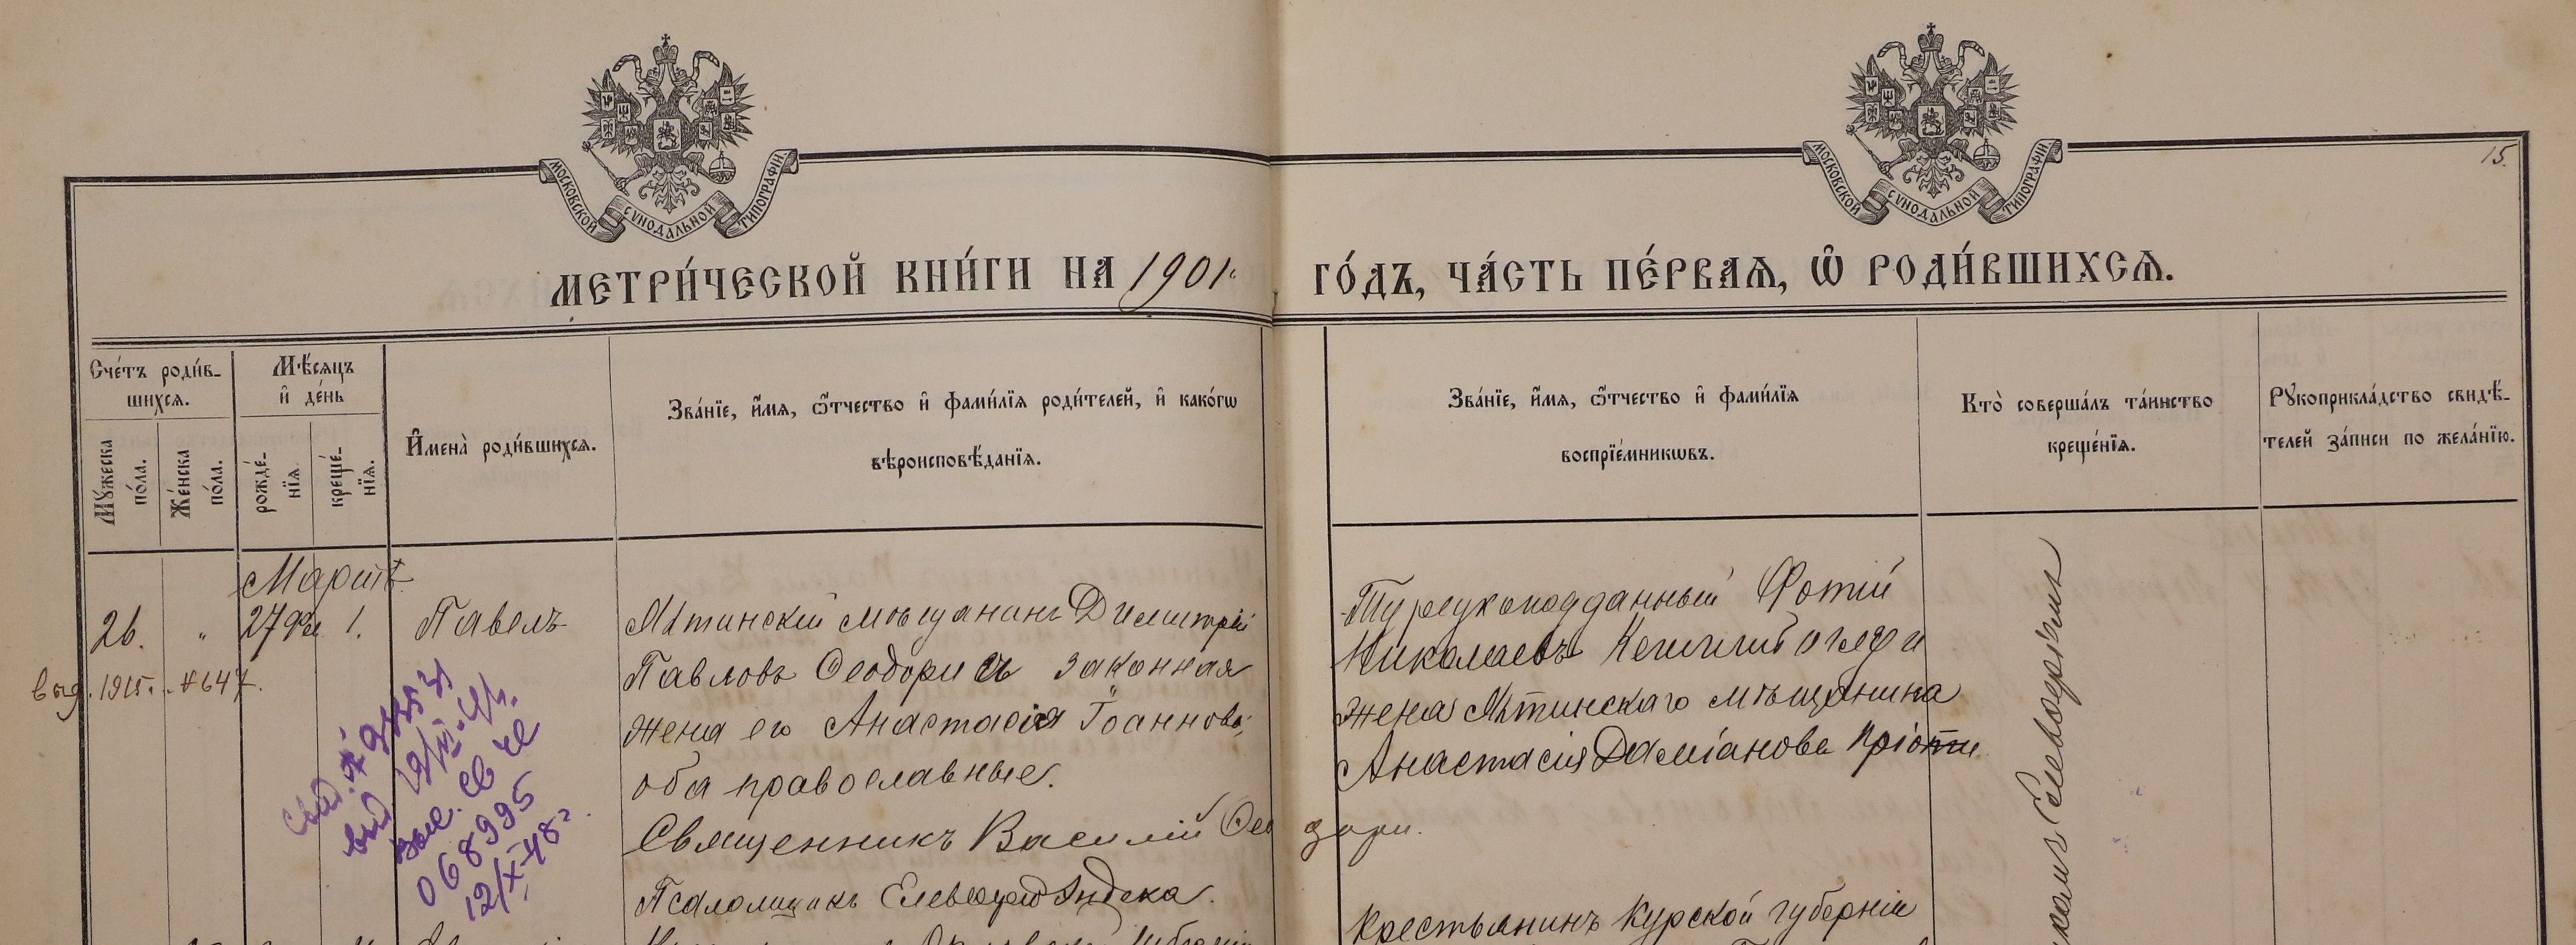 МОСКОВСКОЙ СѴНОДАЛЬНОЙ ТИПОГРАФІИ
МОСКОВСКОЙ СѴНОДАЛЬНОЙ ТИПОГРАФІИ
15.
МЕТРИ́ЧЕСКОЙ КНИ́ГИ НА 1901 ГО́ДЪ, ЧА́СТЬ ПЕ́РВАѦ, Ѽ РОДИ́ВШИХСѦ.
Сче́тъ роди́в-
шихсѧ.
Мꙋ́жеска
по́ла.
Же́нска
по́ла.
Мѣ́сѧцъ
и҆ де́нь
рожде́-
нїѧ
креще́-
нїѧ.
И҆мена̀ роди́вшихсѧ.
Зва́нїе, и҆́мѧ, ѻ҆́тчество и҆ фами́лїѧ роди́телей, и҆ како́гѡ
вѣроисповѣ́данїѧ.
Зва́нїе, и҆́мѧ, ѻ҆́тчество и҆ фами́лїѧ
воспрїе́мникѡвъ.
Кто̀ соверша́лъ та́инство
креще́нїѧ.
Рꙋкоприкла́дство свидѣ́-
телей за́писи по жела́нїю.
Мартъ
26. " 27 Фев 1. Павелъ
выд. 1915 г. № 647.
068995
12/X-48 г.
Ялтинскій мѣщанинъ Димитрій
Павловъ Ѳеодори и законная
жена его Анастасія Іоаннова,
оба православные.
Священникъ Василій Ѳеодори.
Псаломщикъ Елевѳерій Индека.
Турецкоподданный Фотій
Николаевъ и
жена Ялтинскаго мѣщанина
Анастасія Даміанова
Крестьянинъ Курской губерніи